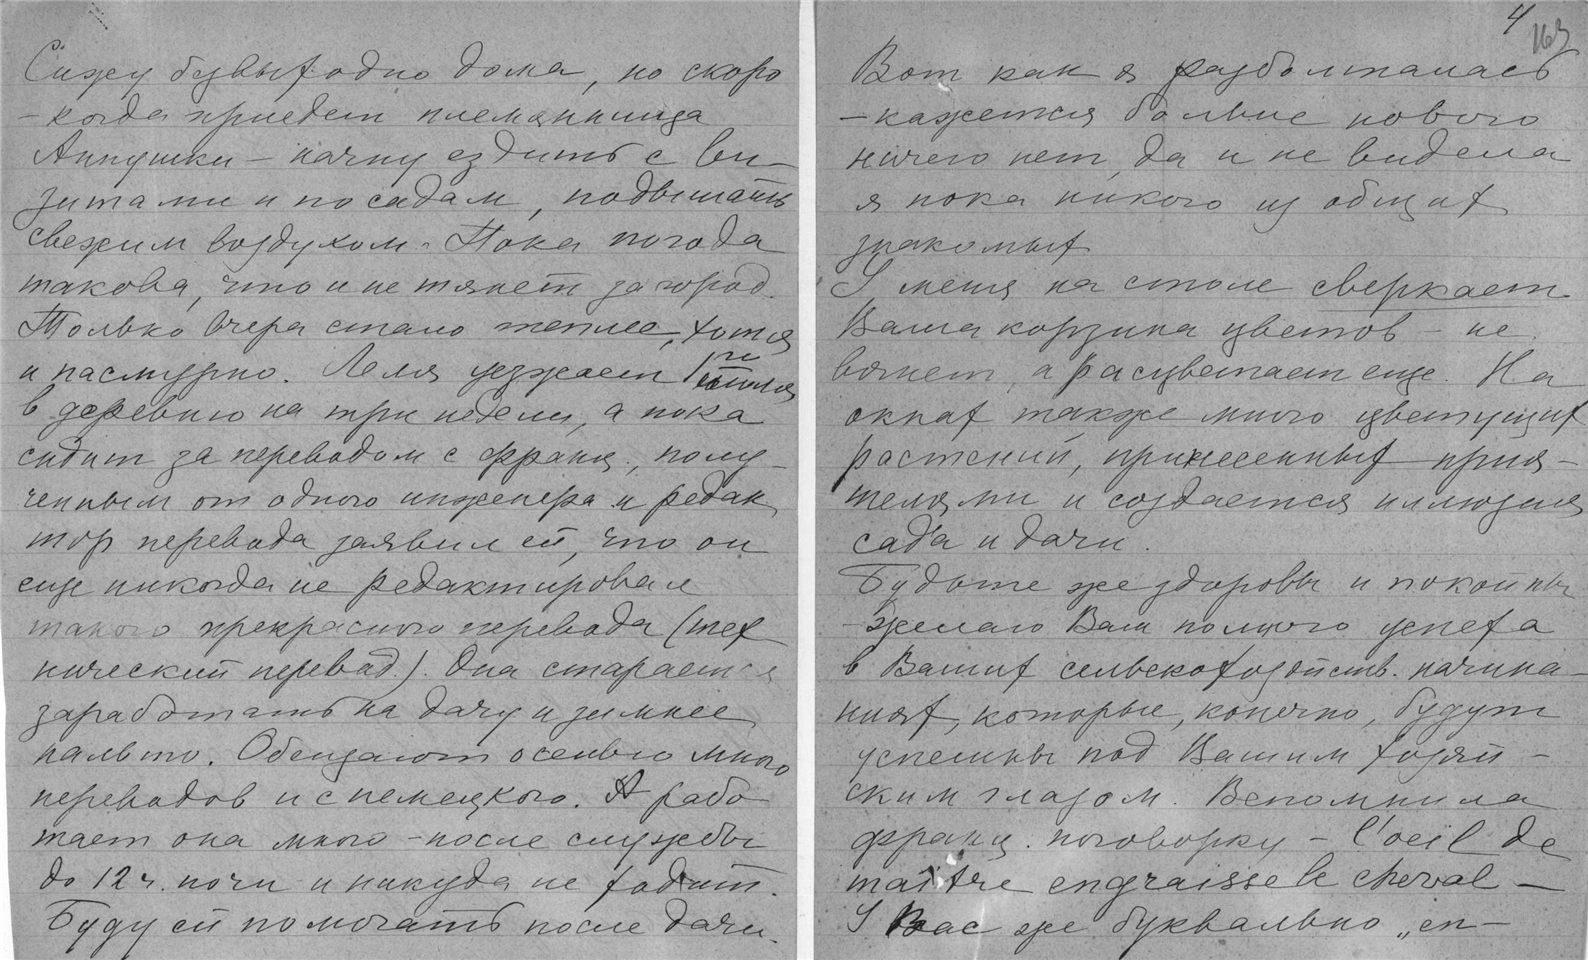 Сижу безвыходно дома, но скоро
– когда приедет племянница
Аннушки – начну ездить с ви-
зитами и по садам, подышать
свежим воздухом. Пока погода
такова, что и не тянет за город.
Только вчера стало теплее, хотя
и пасмурно. Леля уезжает 1го июля
в деревню на три недели, а пока
сидит за переводом с франц., полу-
ченным от одного инженера и редак
тор перевода заявил ей, что он
еще никогда не редактировал
такого прекрасного перевода (тех
нический перевод.). Она старается
заработать на дачу и зимнее
пальто. Обещают осенью много
переводов и с немецкого. А рабо
тает она много – после службы
до 12 ч. ночи и никуда не ходит.
Буду ей помогать после дачи.
4
163
Вот как я разболталась
– кажется больше нового
ничего нет, да и не видела
я пока никого из общих
знакомых
У меня на столе сверкает
Ваша корзина цветов – не
вянет, а расцветает еще. На
окнах также много цветущих
растений, принесенных прия-
телями и создается иллюзия
сада и дачи.
Будьте же здоровы и покойны
– желаю Вам полного успеха
в Ваших сельскохозяйств. начина-
ниях, которые, конечно, будут
успешны под Вашим хозяй-
ским глазом. Вспомнила
франц. поговорку – l'oeil de
maître engraisse le cheval –
У Вас же буквально „en-